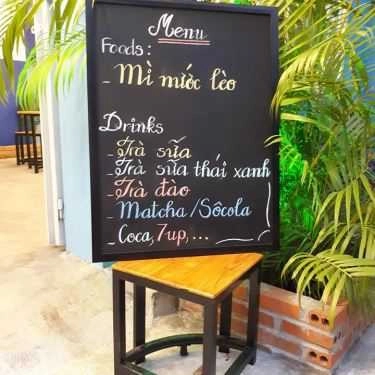 Menu
Foods:
- Mì nước lèo
Drinks
- Trà sữa
- Trà sữa thái xanh
- Trà đào
- Matcha/Sôcola
- Coca, 7up, ...